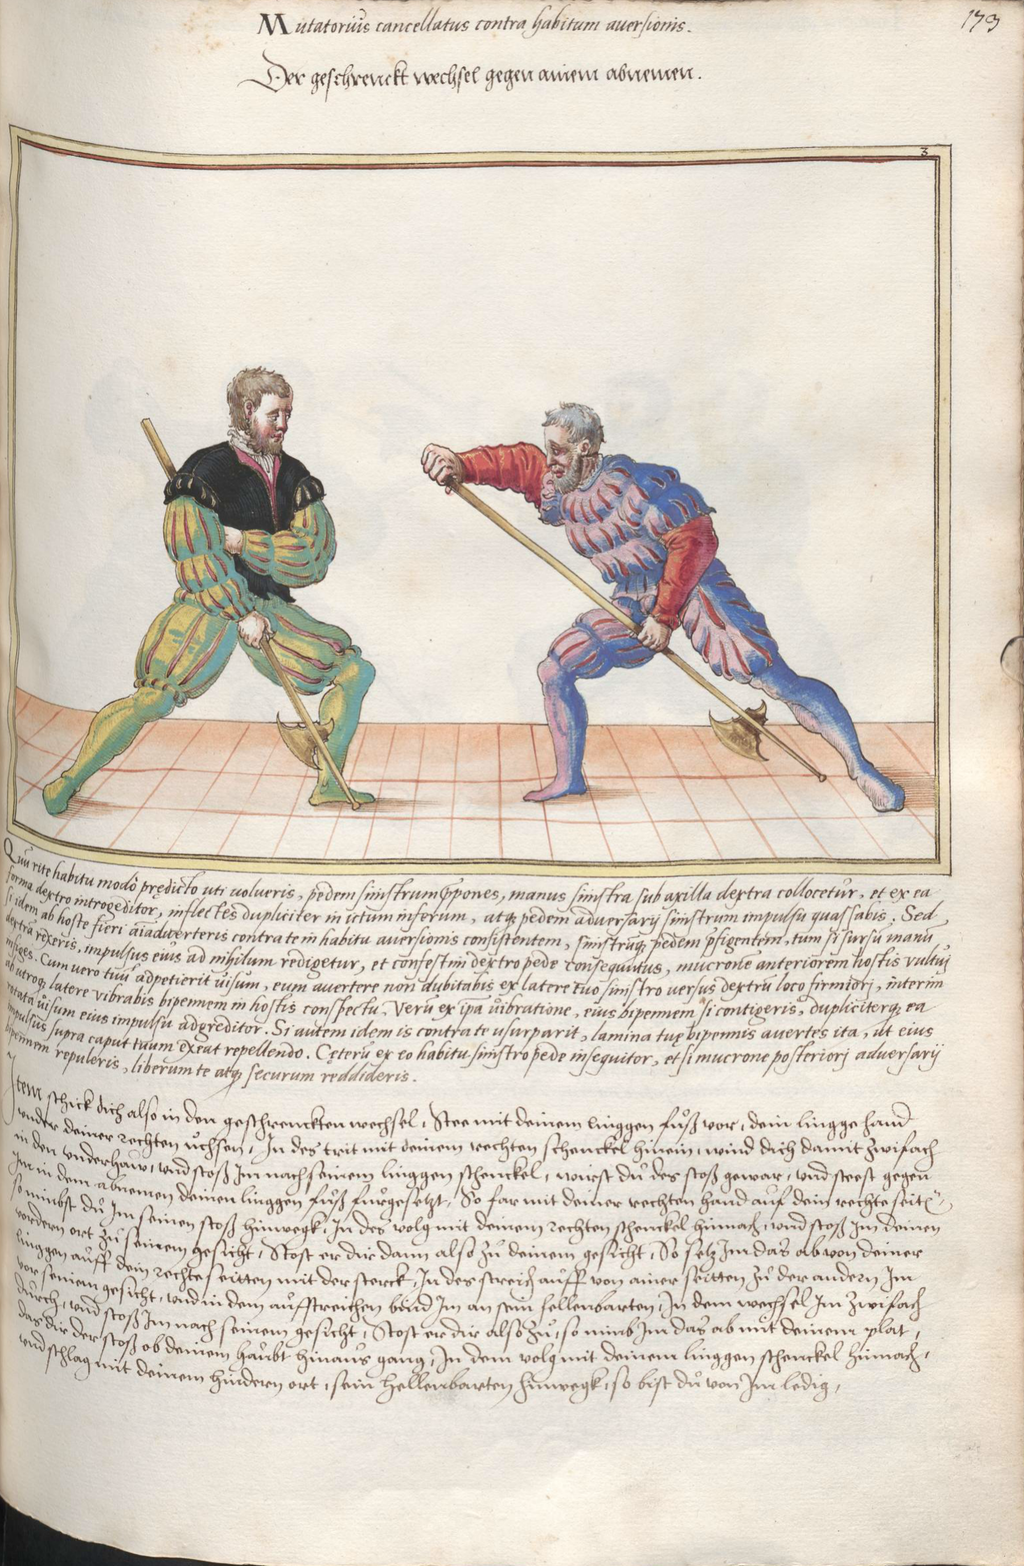 173
Mutatorius cancellatus contra habitum auersionis.
Der geschrenckt wechsel gegen ainem abnemen.
3
Quū rite habitu modo prędicto uti uolueris, pedem sinistrum p̱pones, manus sinistra sub axilla dextra collocetur, et ex ea
forma dextro introgeditor, inflectes dupliciter in ictum inferum, atq̃ pedem aduersarij sinistrum impulsu quassabis. Sed,
si idem ab hoste fieri aiaduerteris contra te in habitu auersionis consistentem, sinistruq̃ pedem p̱figentem, tum si sursū manū
dextrā rexeris, impulsus eius ad nihilum redigetur, et confestim dextro pede consequutus, mucrone anteriorem hostis vultui
infiges. Cum uero tuū adpetierit uisum, eum auertere non dubitabis ex latere tuo sinistro versus dextrū loco firmiori, interim
ab utroq̃ latere vibrabis bipennem in hostis conspectu, Verū ex ipa uibratione, eius bipennem si contigeris, dupliciterq̃ ea
rotata uisum eius impulsu adgreditor. Si autem idem is contra te usurparit, lamina tuę bipennis auertes ita, ut eius
impulsus supra caput tuum exeat repellendo. Cęterū ex eo habitu sinistro pede insequitor, et si mucrone posteriori aduersarij
bipennem repuleris, liberum te atq̃ securum reddideris.
Item schick dich also in den geschrenckten wechsel, Stee mit deinem linggen fůß vor, dein lingge hand
vnder deiner rechten ůchsen, In des trit mit deinem rechten schenckel hinein, wind dich damit zwifach
in den vnderhaw, vnd stoß Im nach seinem linggen schenckel, wurst dů des stoß gewar, vnd steest gegen
Im in dem abnemen deinen linggen fůß fůrgesetzt, So far mit deiner rechten hand auf dein rechte seite,
so nimbst dů Im seinen stoß hinwegk, In des volg mit deinem rechten schenckel hinnach, vnd stoß Im deinen
vordern ort zů seinem gesicht, Stost er dir dann also zů deinem gesicht, So setz Im das ab von deiner
linggen aůff dein rechte seitten mit der sterck, In des streich aůff von ainer seitten zů der andern Im
vor seinem gesicht, vnd in dem aůffstreichen bind Im an sein hellenbarten, In dem wechsel Im zwifach
důrch, vnd stoß Im nach seinem gesicht, Stost er dir also zů, so nimb Im das ab mit deinem plat,
das dir der stoß ob deinem haůbt hinaůs gang, In dem volg mit deinem linggen schenckel hinnach,
vnd schlag mit deinem hindern ort, sein hellenbarten hinwegk, so bist dů von Im ledig,